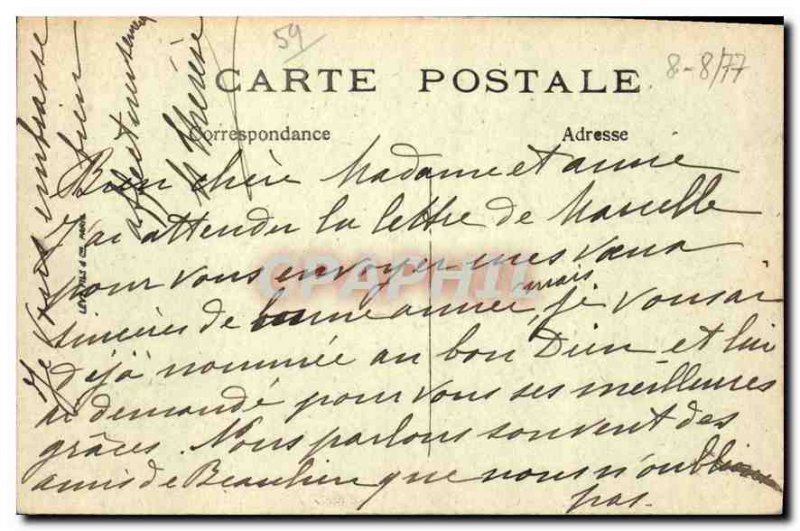 59
8-8/77
CARTE POSTALE
Correspondance
Adresse
Bien chère Madame et amie
J'ai attendu la lettre de Marcelle
pour vous envoyer mes voeux
sincères de bonne année, mais je vous ai
déjà nommée au bon Dieu et lui
ai demandé pour vous ses meilleures
grâces. Nous parlons souvent des
amis de Beaulieu que nous n'oublions
pas.
Je vous embrasse
bien
affectueusement
Thérèse
CPAPHIL